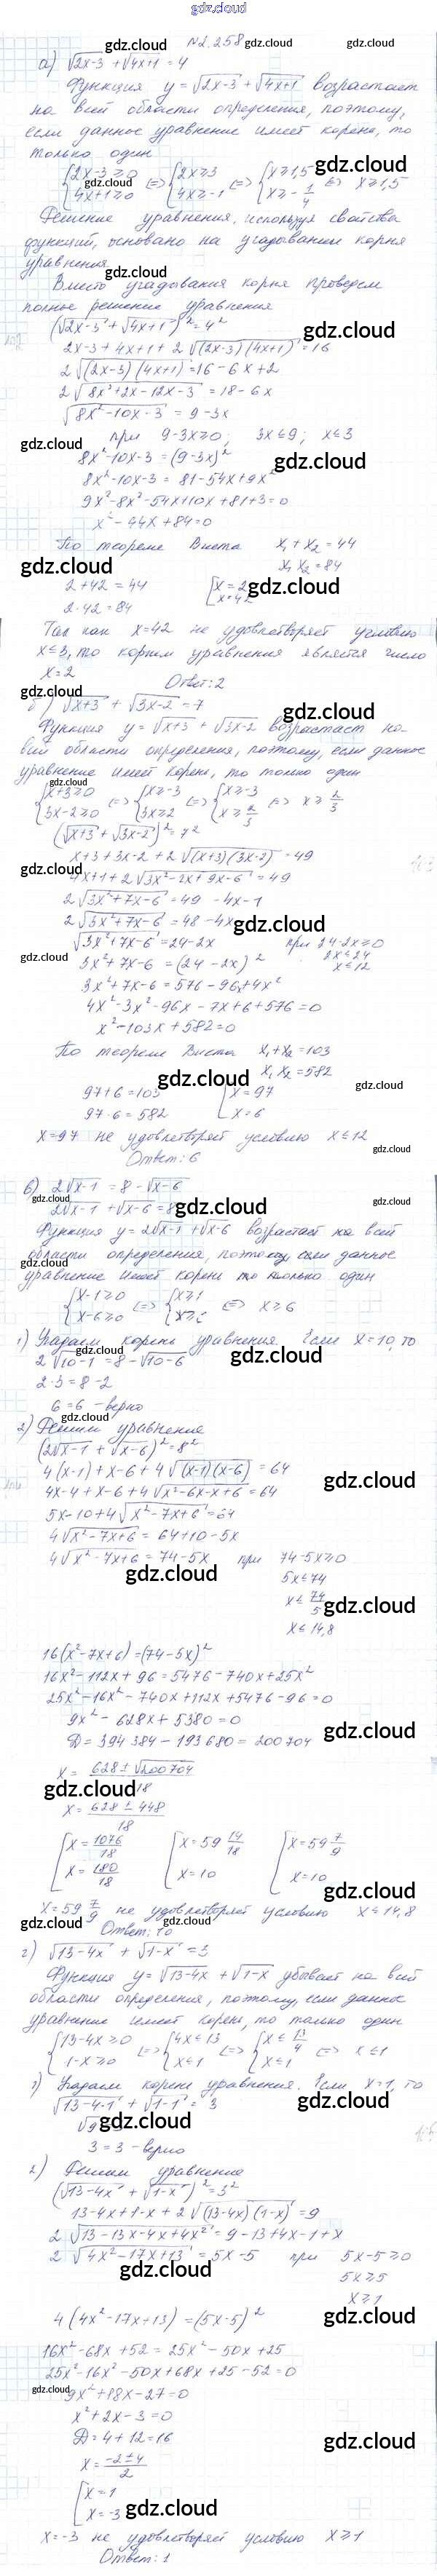 gdz.cloud
№2.258
а) √(2x-3) + √(4x+1) = 4
Функция y = √(2x-3) + √(4x+1) возрастает
на всей области определения, поэтому,
если данное уравнение имеет корень, то
только один
{2x-3≥0 4x+1≥0 <=> {2x≥3 4x≥-1 <=> {x≥1,5 x≥-1/4 <=> x≥1,5
Решение уравнения, используя свойства
функций, основано на угадывании корня
уравнения.
Вместо угадывания корня проведем
полное решение уравнения
(√(2x-3) + √(4x+1))² = 4²
2x-3+4x+1+2√((2x-3)(4x+1)) = 16
2√((2x-3)(4x+1)) = 16-6x+2
2√(8x²+2x-12x-3) = 18-6x
√(8x²-10x-3) = 9-3x
при 9-3x≥0; 3x≤9; x≤3
8x²-10x-3 = (9-3x)²
8x²-10x-3 = 81-54x+9x²
9x²-8x²-54x+10x+81+3=0
x²-44x+84=0
По теореме Виета x₁+x₂=44
x₁x₂=84
2+42=44 [x=2
2·42=84 x=42
Так как x=42 не удовлетворяет условию
x≤3, то корнем уравнения является число
x=2
Ответ: 2
б) √(x+3) + √(3x-2) = 7
Функция y = √(x+3) + √(3x-2) возрастает на
всей области определения, поэтому, если данное
уравнение имеет корень, то только один
{x+3≥0 3x-2≥0 <=> {x≥-3 3x≥2 <=> {x≥-3 x≥2/3 <=> x≥2/3
(√(x+3) + √(3x-2))² = 7²
x+3+3x-2+2√((x+3)(3x-2)) = 49
4x+1+2√(3x²-2x+9x-6) = 49
2√(3x²+7x-6) = 49-4x-1
2√(3x²+7x-6) = 48-4x
√(3x²+7x-6) = 24-2x при 24-2x≥0
2x≤24
3x²+7x-6 = (24-2x)² x≤12
3x²+7x-6 = 576-96x+4x²
4x²-3x²-96x-7x+6+576=0
x²-103x+582=0
По теореме Виета x₁+x₂=103
x₁x₂=582
97+6=103 [x=97
97·6=582 x=6
x=97 не удовлетворяет условию x≤12
Ответ: 6
в) 2√(x-1) = 8-√(x-6)
2√(x-1) + √(x-6) = 8
Функция y = 2√(x-1) + √(x-6) возрастает на всей
области определения, поэтому, если данное
уравнение имеет корень то только один
{x-1≥0 x-6≥0 <=> {x≥1 x≥6 <=> x≥6
1) Угадаем корень уравнения. Если x=10, то
2√(10-1) = 8-√(10-6)
2·3=8-2
6=6 - верно
2) Решим уравнение
(2√(x-1) + √(x-6))² = 8²
4(x-1)+x-6+4√((x-1)(x-6)) = 64
4x-4+x-6+4√(x²-6x-x+6) = 64
5x-10+4√(x²-7x+6) = 64
4√(x²-7x+6) = 64+10-5x
4√(x²-7x+6) = 74-5x при 74-5x≥0
5x≤74
x≤74/5
x≤14,8
16(x²-7x+6)=(74-5x)²
16x²-112x+96=5476-740x+25x²
25x²-16x²-740x+112x+5476-96=0
9x²-628x+5380=0
D=394384-193680=200704
x=(628±√200704)/18
x=(628±448)/18
[x=1076/18 [x=59 14/18 [x=59 7/9
x=180/18 x=10 x=10
x=59 7/9 не удовлетворяет условию x≤14,8
Ответ: 10
г) √(13-4x) + √(1-x) = 3
Функция y = √(13-4x) + √(1-x) убывает на всей
области определения, поэтому, если данное
уравнение имеет корень, то только один
{13-4x≥0 1-x≥0 <=> {4x≤13 x≤1 <=> {x≤13/4 x≤1 <=> x≤1
1) Угадаем корень уравнения. Если x=1, то
√(13-4·1) + √(1-1) = 3
√9
3=3 - верно
2) Решим уравнение
(√(13-4x) + √(1-x))² = 3²
13-4x+1-x+2√((13-4x)(1-x)) = 9
2√(13-13x-4x+4x²) = 9-13+4x-1+x
2√(4x²-17x+13) = 5x-5 при 5x-5≥0
5x≥5
x≥1
4(4x²-17x+13)=(5x-5)²
16x²-68x+52=25x²-50x+25
25x²-16x²-50x+68x+25-52=0
9x²+18x-27=0
x²+2x-3=0
D=4+12=16
x=(-2±4)/2
[x=1
x=-3
x=-3 не удовлетворяет условию x≥1
Ответ: 1